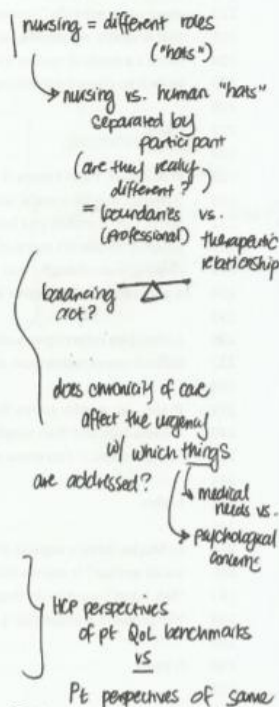 nursing = different roles
("hats")
nursing vs. human "hats"
separated by
participant
(are they really
different?)
= boundaries vs.
(professional) therapeutic
relationship
balancing
act?
does chronicity of care
affect the urgency
w/ which things
are addressed?
medical
needs vs.
psychological
concerns
HCP perspectives
of pt QoL benchmarks
vs
Pt perpectives of same